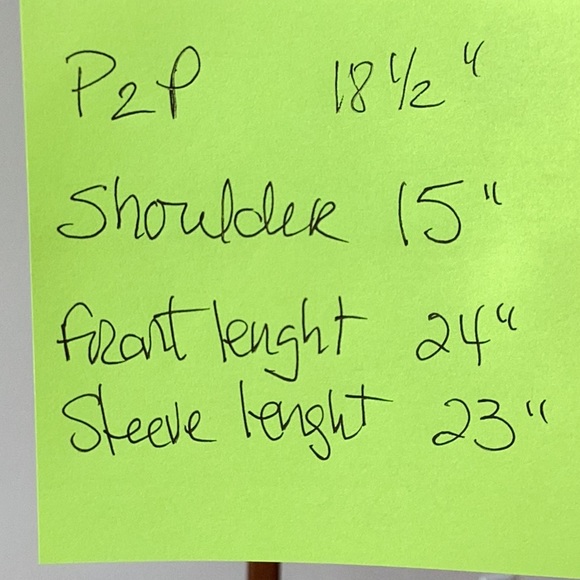 P2P 18 1/2"
Shoulder 15"
front lenght 24"
Sleeve lenght 23"